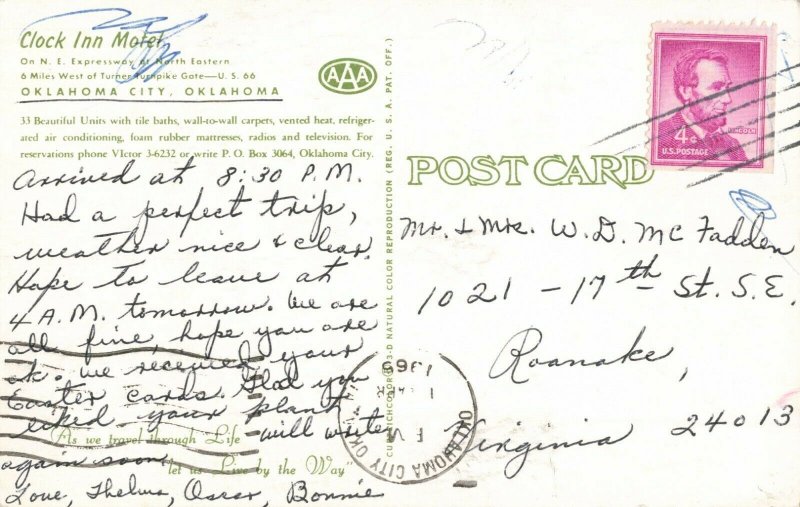 Clock Inn Motel
On N. E. Expressway at North Eastern
6 Miles West of Turner Turnpike Gate—U. S. 66
OKLAHOMA CITY, OKLAHOMA
AAA
33 Beautiful Units with tile baths, wall-to-wall carpets, vented heat, refriger-
ated air conditioning, foam rubber mattresses, radios and television. For
reservations phone VIctor 3-6232 or write P. O. Box 3064, Oklahoma City.
Arrived at 8:30 P.M.
Had a perfect trip,
weather nice & clear.
Hope to leave at
4 A.M. tomorrow. We are
all fine, hope you are
ok. We received your
Easter cards. Glad you
liked your plant
will write
again soon
Love, Thelma, Oscar, Bonnie
"As we travel through Life
let us Live by the Way"
NATURAL COLOR REPRODUCTION (REG. U. S. A. PAT. OFF.)
POST CARD
4¢
LINCOLN
U.S. POSTAGE
OKLAHOMA CITY OKLA
Mr. & Mrs. W. D. McFadden
1021 - 17th St. S. E.
Roanoke,
Virginia 24013